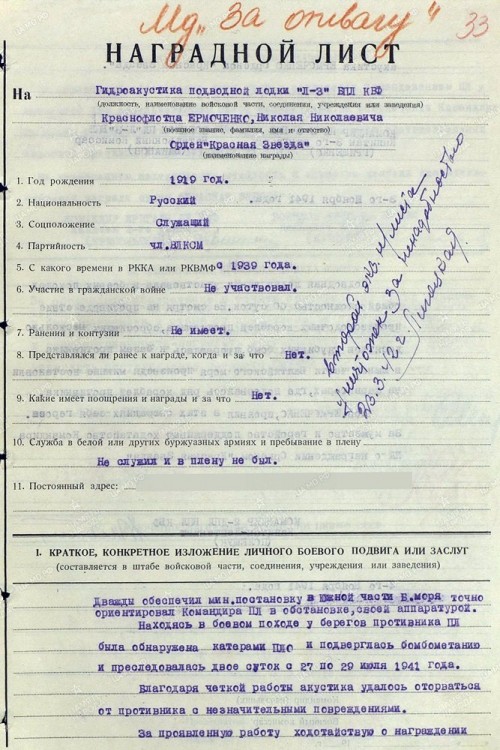 Мд „За отвагу"
33
НАГРАДНОЙ ЛИСТ
На Гидроакустика подводной лодки "Л-3" БПЛ КБФ
(должность, наименование войсковой части, соединения, учреждения или заведения)
Краснофлотца ЕРМОЧЕНКО, Николая Николаевича
(военное звание, фамилия, имя и отчество)
Орден "Красная Звезда"
(наименование награды)
1. Год рождения 1919 год.
2. Национальность Русский
3. Соцположение Служащий
4. Партийность чл.ВЛКСМ
5. С какого времени в РККА или РКВМФ с 1939 года.
6. Участие в гражданской войне Не участвовал.
7. Ранения и контузии Не имеет.
8. Представлялся ли ранее к награде, когда и за что Нет.
9. Какие имеет поощрения и награды и за что Нет.
10. Служба в белой или других буржуазных армиях и пребывание в плену
Не служил и в плену не был.
11. Постоянный адрес:
Второй экз. н/листа
уничтожен за ненадобностью
23.3.42 г.
I. КРАТКОЕ, КОНКРЕТНОЕ ИЗЛОЖЕНИЕ ЛИЧНОГО БОЕВОГО ПОДВИГА ИЛИ ЗАСЛУГ
(составляется в штабе войсковой части, соединения, учреждения или заведения)
Дважды обеспечил мин.постановку в Южной части Б.моря точно
ориентировал Командира ПЛ в обстановке, своей аппаратурой.
Находясь в боевом походе у берегов противника ПЛ
была обнаружена катерами ПЛО и подверглась бомбометанию
и преследовалась двое суток с 27 по 29 июля 1941 года.
Благодаря четкой работы акустика удалось оторваться
от противника с незначительными повреждениями.
За проявленную работу ходотайствую о награждении